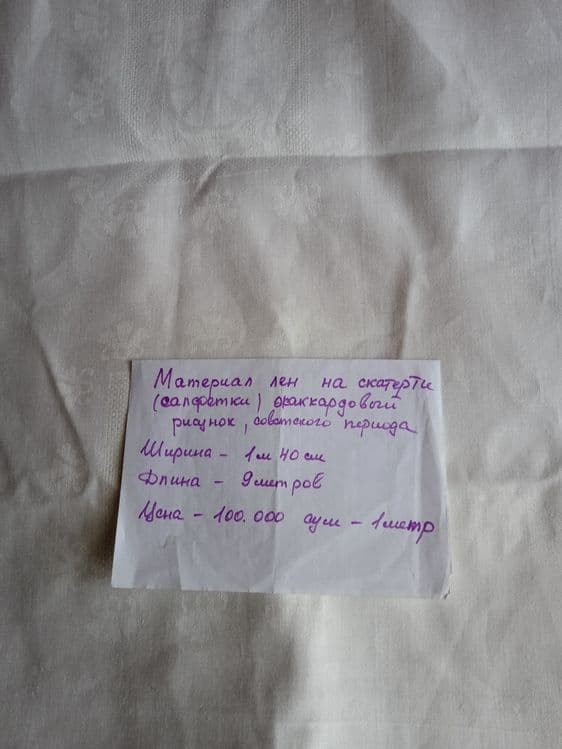 Материал лен на скатерти
(салфетки) жаккардовый
рисунок, советского периода
Ширина - 1м 40 см
Длина - 9 метров
Цена - 100.000 сум - 1 метр